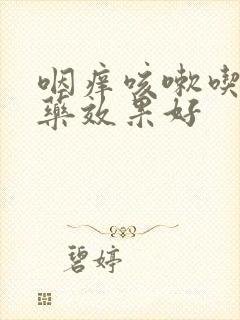 咽痒咳嗽喫
藥效果好
碧婷